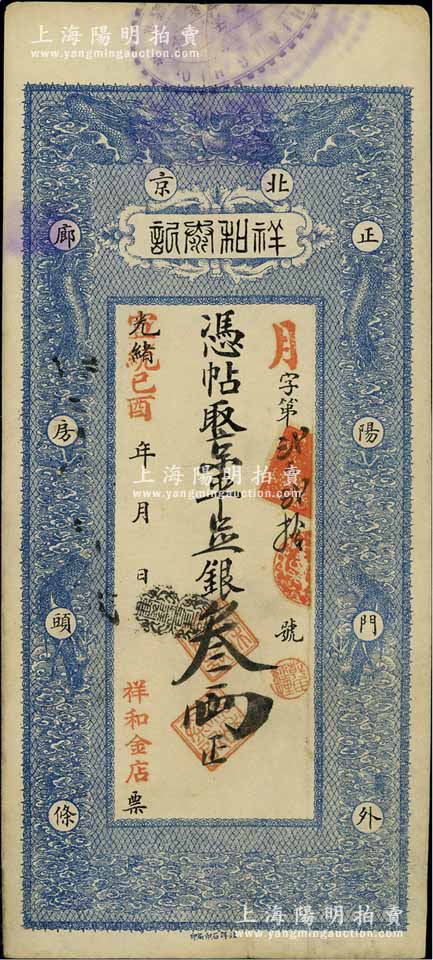 上海陽明拍賣
www.yangmingauction.com
北京
祥和號記
正陽門外
廊房頭條
月字第貳貳拾號
憑帖取京平足銀叁兩正
光緒
宣統己酉年月日
祥和金店票
上海陽明拍賣
www.yangmingauction.com
上海陽明拍賣
www.yangmingauction.com